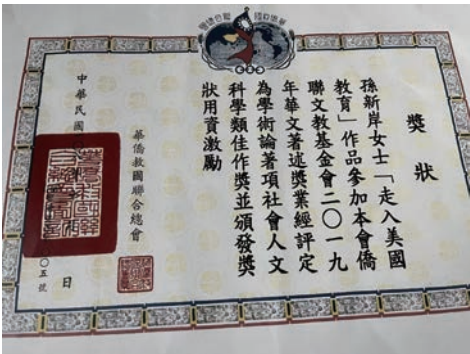 獎狀
孫新岸女士「走入美國
教育」作品參加本會僑
聯文教基金會二〇一九
年華文著述獎業經評定
為學術論著項社會人文
科學類佳作獎並頒發獎
狀用資激勵
華僑救國聯合總會
中華民國
〇五號
日